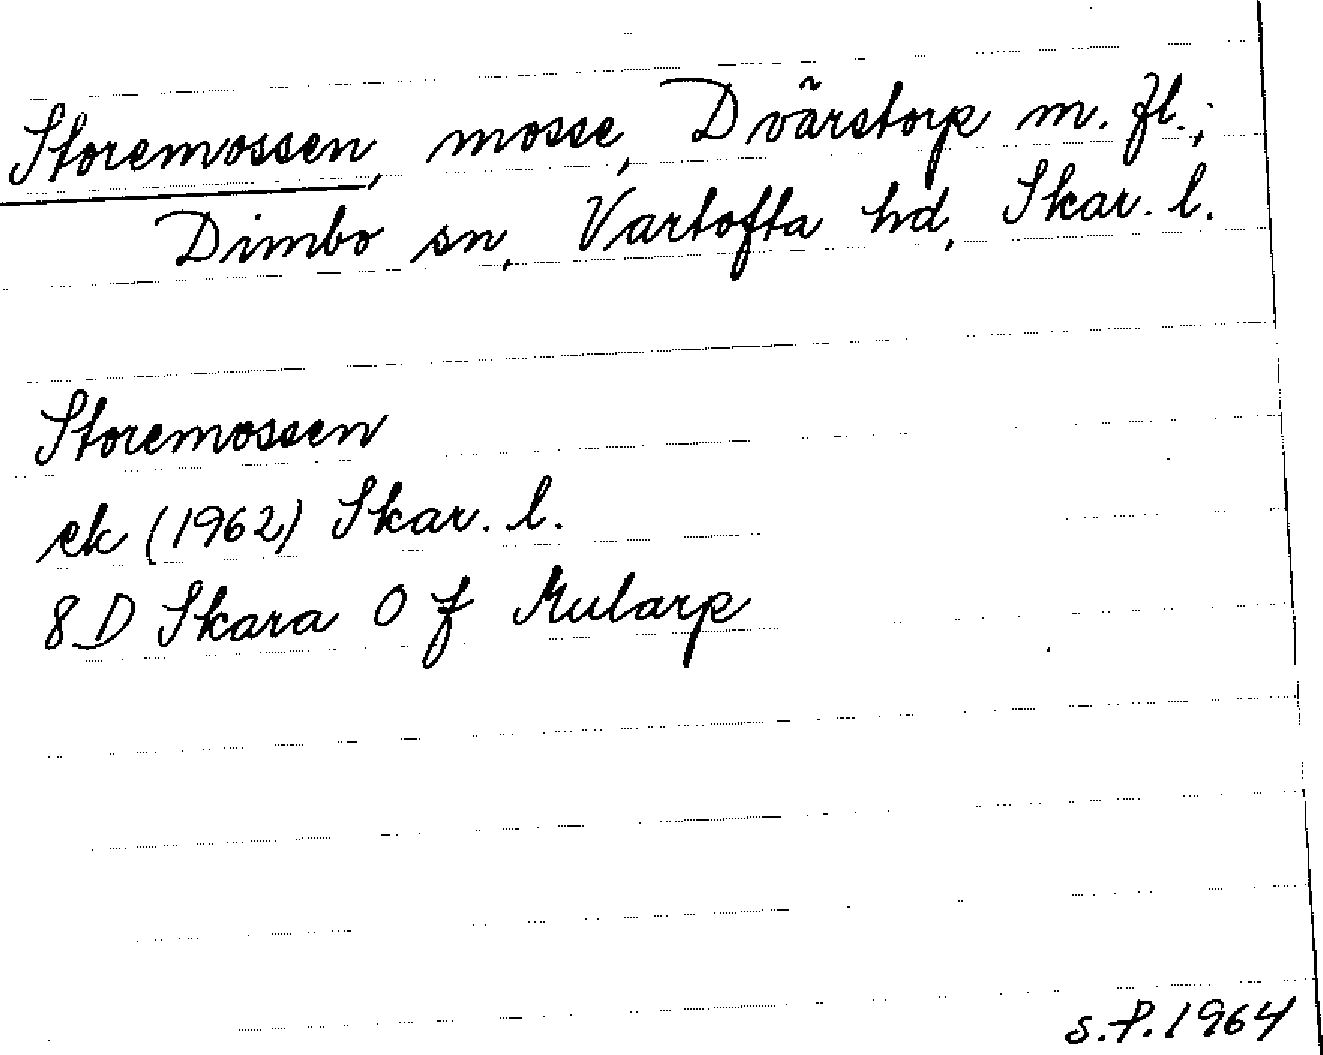 Storemossen, mosse, Dvärstorp m. fl.;
Dimbo sn, Vartofta hd, Skar. l.
Storemossen
ek (1962) Skar. l.
8D Skara 0 f Mularp
S.P. 1964